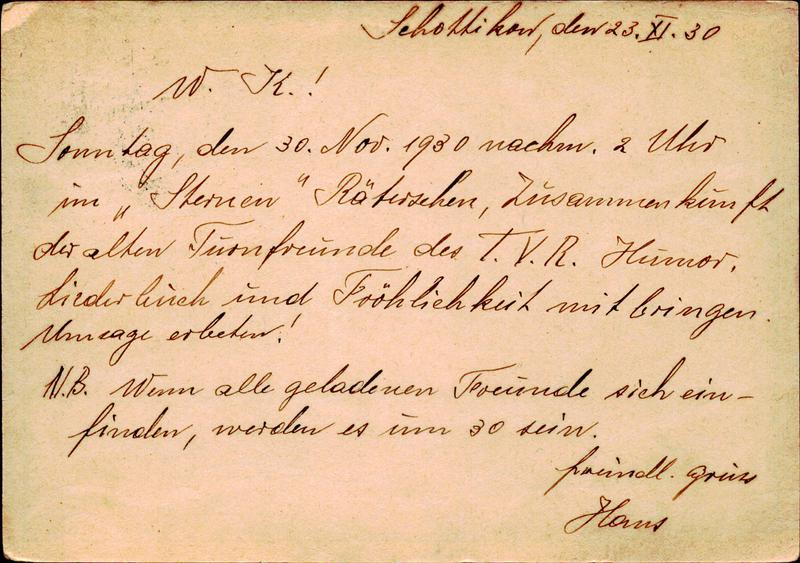 Schottikon, den 23. XI. 30
W. K.!
Sonntag, den 30. Nov. 1930 nachm. 2 Uhr
im „Sternen" Räterschen, Zusammenkunft
der alten Turnfreunde des T. V. R. Humor,
Liederbuch und Fröhlichkeit mitbringen.
Umsage erbeten!
N.B. Wenn alle geladenen Freunde sich ein-
finden, werden es um 30 sein.
freundl. Gruss
Hans